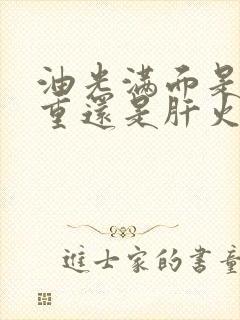 油光满面是
重还是肝火
进士家的书童